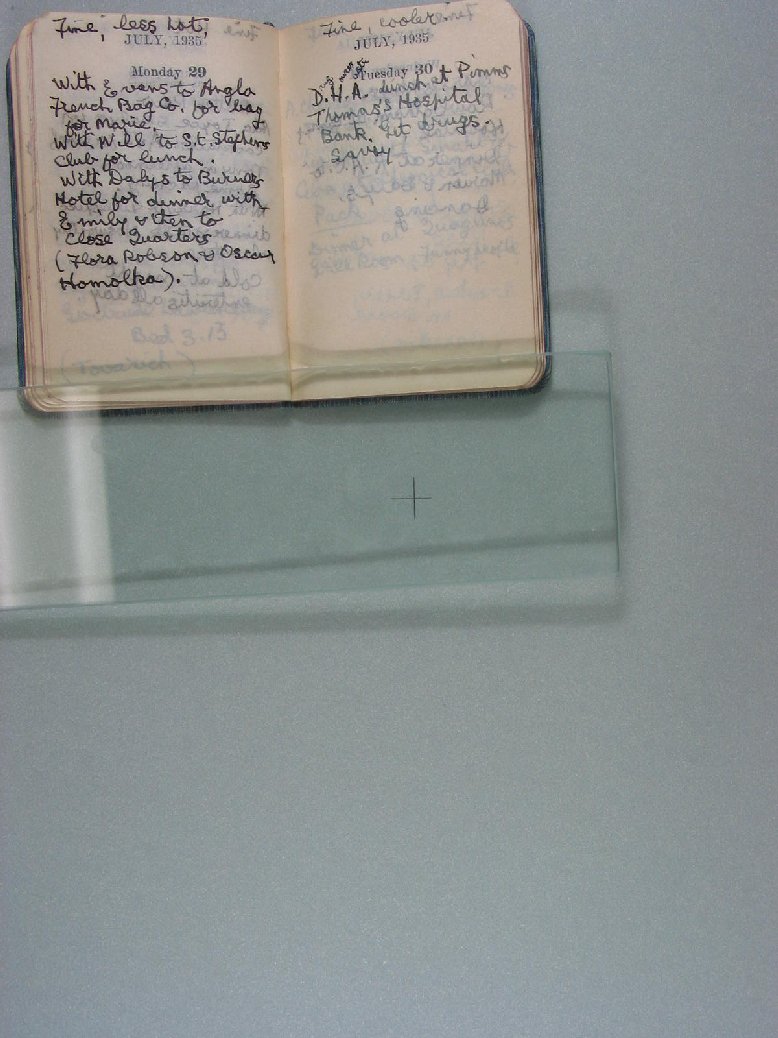 Fine, less hot,
JULY, 1935
Monday 29
With Evans to Anglo
French Bag Co. for bag
for Marie.
With Will to St. Stephens
Club for lunch.
With Dalys to Berners
Hotel for dinner with
Emily & then to
Close Quarters
(Flora Robson & Oscar
Homolka).
Fine, cooler.
JULY, 1935
Tuesday 30
D.H.A. lunch at Pimms
Thomas's Hospital
Bank. Get drugs.
Savoy